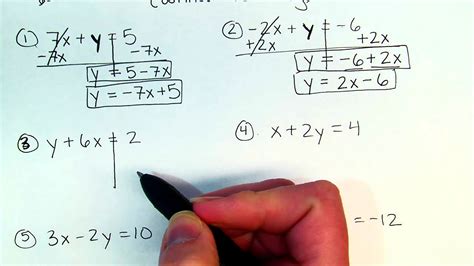 ① 7x + y = 5
-7x -7x
y = 5 - 7x
y = -7x + 5
② -2x + y = -6
+2x +2x
y = -6 + 2x
y = 2x - 6
③ y + 6x = 2
④ x + 2y = 4
⑤ 3x - 2y = 10
= -12